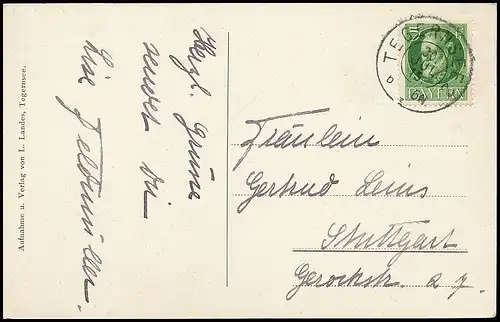 Aufnahme u. Verlag von L. Landes, Tegernsee.
Herzl. Grüsse
sendet Dir
Lise Feldmüller.
TEGERNSEE
BAYERN
5
Fräulein
Gertrud Leins
Stuttgart
Gerokstr. 27.